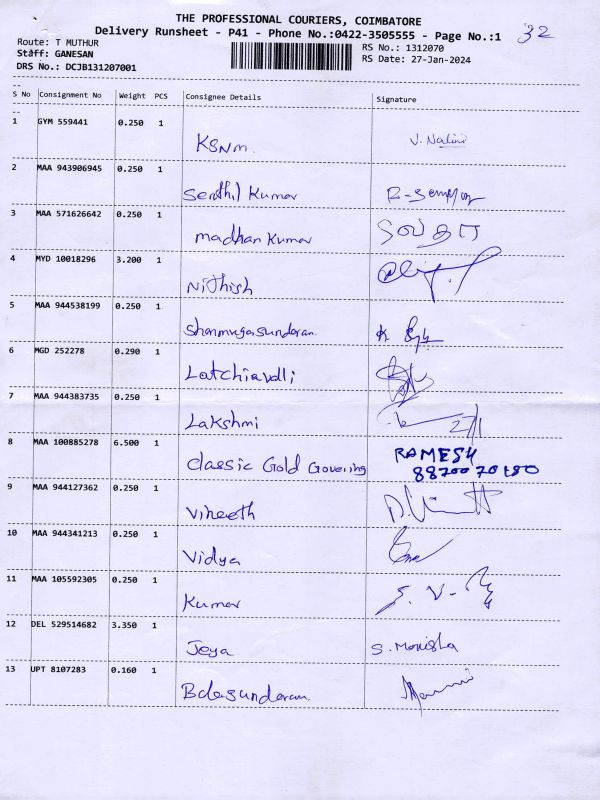 THE PROFESSIONAL COURIERS, COIMBATORE
Delivery Runsheet - P41 - Phone No.:0422-3505555 - Page No.:1 32
Route: T MUTHUR
Staff: GANESAN
DRS No.: DCJB131207001
RS No.: 1312070
RS Date: 27-Jan-2024
S No Consignment No Weight PCS Consignee Details Signature
1 GYM 559441 0.250 1
KSNM. V. Nalini
2 MAA 943906945 0.250 1
Senthil Kumar
3 MAA 571626642 0.250 1
madhan Kumar
4 MYD 10018296 3.200 1
Nithish
5 MAA 944538199 0.250 1
Shanmugasundaram. K
6 MGD 252278 0.290 1
Latchiavalli
7 MAA 944383735 0.250 1
Lakshmi 27/1
8 MAA 100885278 6.500 1
classic Gold Govering RAMESH
88700 70180
9 MAA 944127362 0.250 1
Vineeth
10 MAA 944341213 0.250 1
Vidya
11 MAA 105592305 0.250 1
Kumar
12 DEL 529514682 3.350 1
Jeya S. Monisha
13 UPT 8107283 0.160 1
Balasundaram.